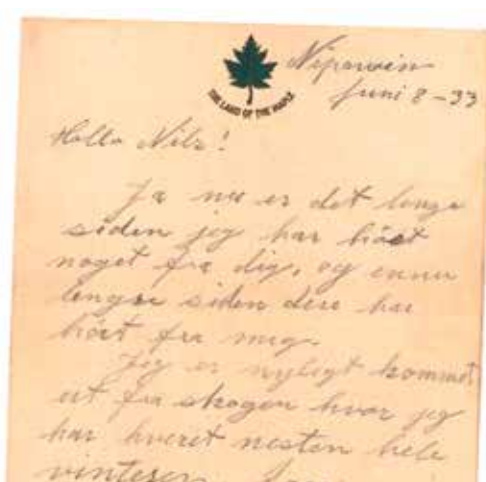 THE LAND OF THE MAPLE
Nipawin
Juni 8-33
Hallo Nils!
Ja nu er det lenge
siden jeg har hört
noget fra dig, og ennu
lengre siden dere har
hört fra meg.
Jeg er nyligt kommet
ut fra skogen hvor jeg
har hveret nesten hele
vinteren